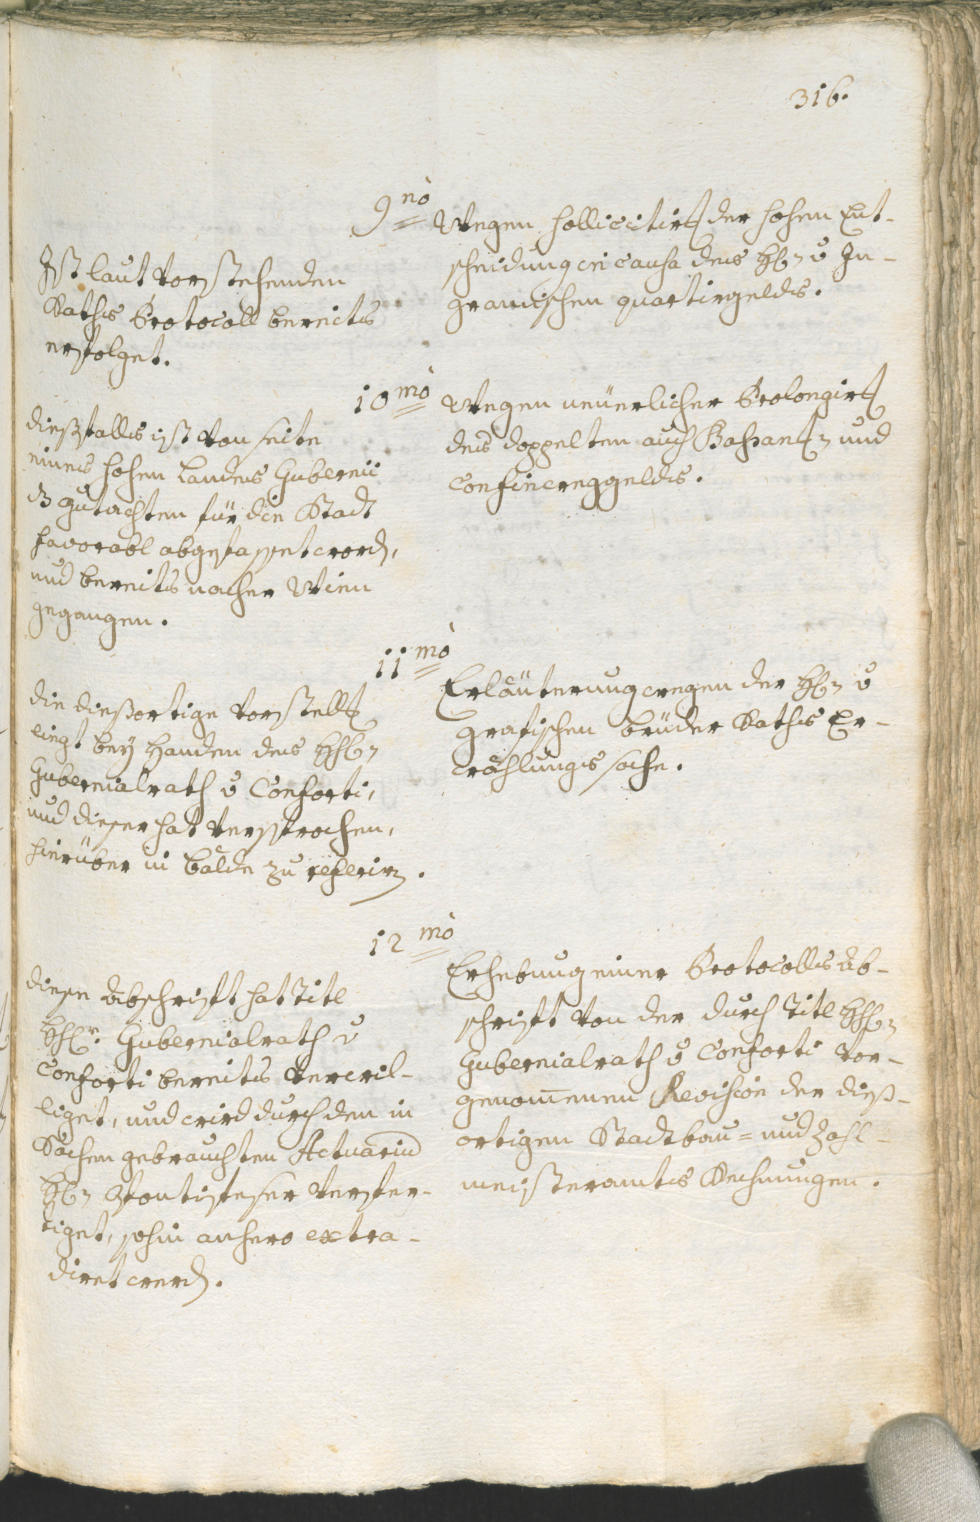 316.
9 nò
Wegen sollicitirg der hohen Ent-
scheidung in causa des Hl: v In-
gramischen quartirgeldts.
Ist laut vorstehenden
Raths Protocoll bereits
erfolget.
10 mò
Wegen neüerlicher Prolongirg
des doppelten auch Passant: und
Confin weggeldts.
dießfalls ist von seite
eines hohen Landes Gubernii
dz gutachten für die Stadt
favorabl abgefasset word,
und bereits nacher Wien
gegangen.
11 mò
Erläuterung wegen der Hl: v
grafischen brüder Raths Er-
wöhlungs sache.
die dießortige vorstellg
liegt bey Handen des HhL:
Gubernialrath v Conforti,
und dieser hat versprochen,
hierüber in bälde zu referirn.
12 mò
Erhebung einer Protocolls ab-
schrift von der durch Titl HhL:
Gubernialrath v Conforti vor-
genommenen Revision der dieß-
ortigen Stadtbau= und Zahl-
meisteramts Rechnungen.
diese Abschrift hat Titl
HhLr. Gubernialrath v
Conforti bereits verwil-
liget, und wird durch den in
Sachen gebrauchten Actuarium
Hl: verfer-
tiget, sohin anhero extra-
diret werd.